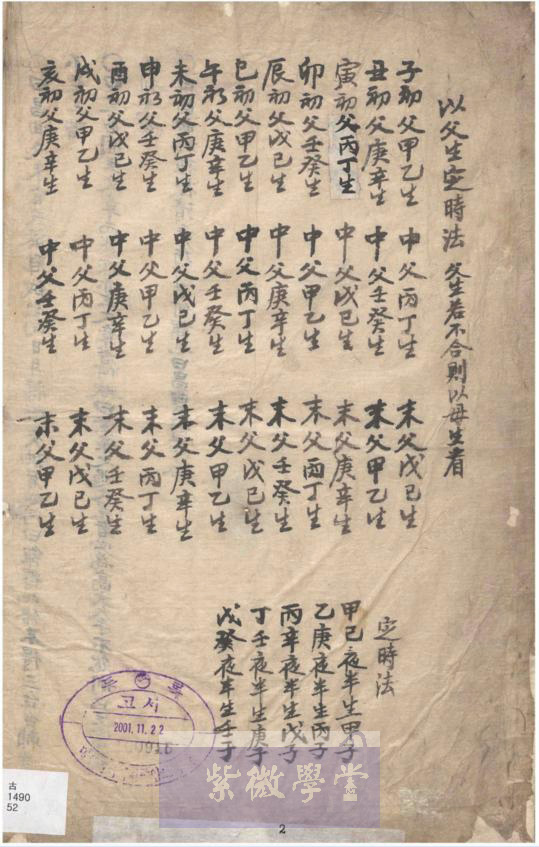 以父生定時法 父生若不合則以母生看
子初父甲乙生 中父丙丁生 末父戊己生
丑初父庚辛生 中父壬癸生 末父甲乙生
寅初父丙丁生 中父戊己生 末父庚辛生
卯初父壬癸生 中父甲乙生 末父丙丁生
辰初父戊己生 中父庚辛生 末父壬癸生
巳初父甲乙生 中父丙丁生 末父戊己生
午初父庚辛生 中父壬癸生 末父甲乙生
未初父丙丁生 中父戊己生 末父庚辛生
申初父壬癸生 中父甲乙生 末父丙丁生
酉初父戊己生 中父庚辛生 末父壬癸生
戌初父甲乙生 中父丙丁生 末父戊己生
亥初父庚辛生 中父壬癸生 末父甲乙生
定時法
甲己夜半生甲子
乙庚夜半生丙子
丙辛夜半生戊子
丁壬夜半生庚子
戊癸夜半生壬子
고서
2001.11.22
古
1490
52
紫微學堂
2